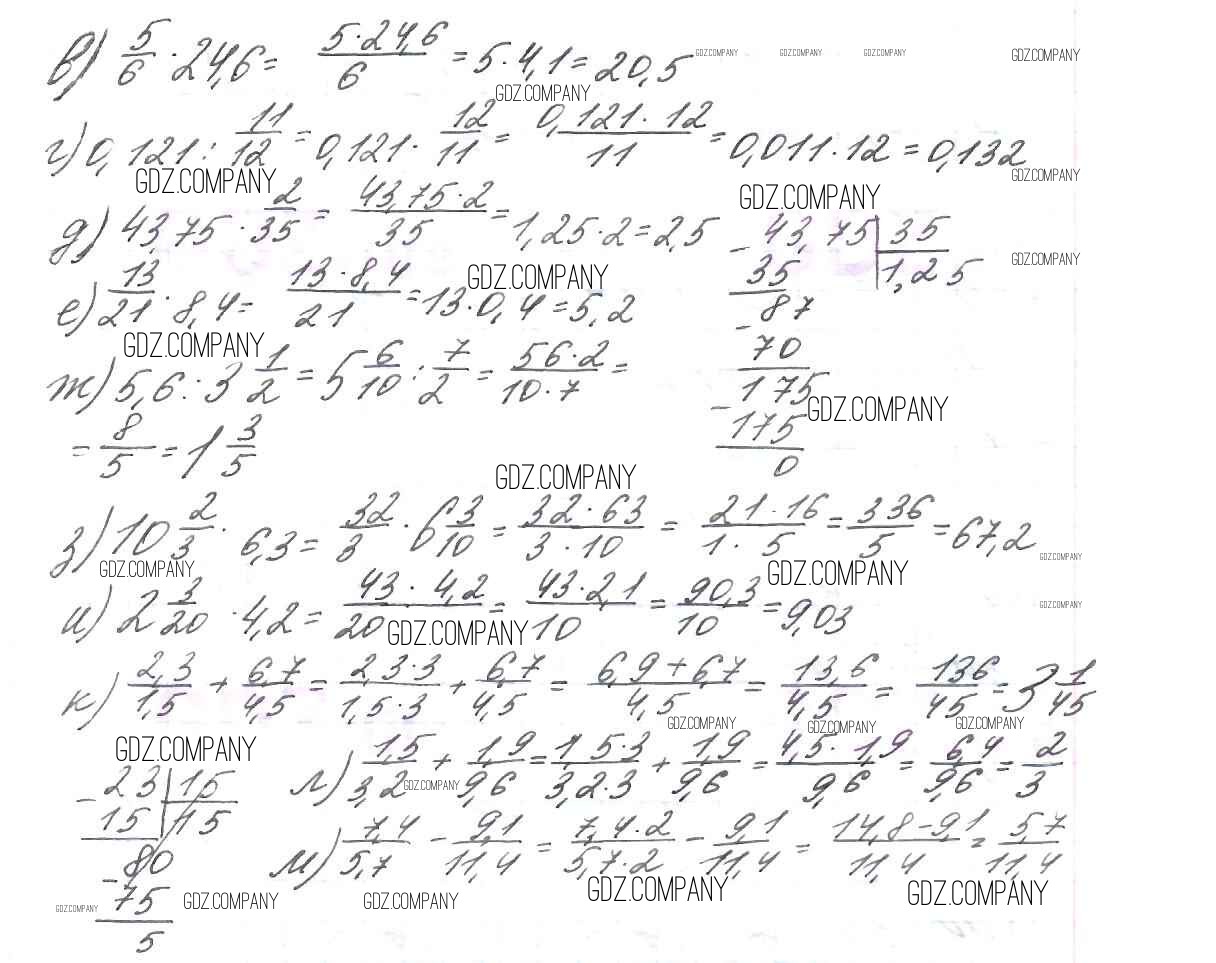 в) 5/6 · 24,6 = 5·24,6/6 = 5·4,1 = 20,5 GDZ.COMPANY GDZ.COMPANY GDZ.COMPANY GDZ.COMPANY
GDZ.COMPANY
г) 0,121 : 11/12 = 0,121 · 12/11 = 0,121·12/11 = 0,011·12 = 0,132
GDZ.COMPANY GDZ.COMPANY GDZ.COMPANY
д) 43,75 · 2/35 = 43,75·2/35 = 1,25·2 = 2,5
- 43,75 | 35
35 | 1,25
- 87
70
- 175
175
0
GDZ.COMPANY GDZ.COMPANY
е) 13/21 · 8,4 = 13·8,4/21 = 13·0,4 = 5,2
GDZ.COMPANY
ж) 5,6 : 3 1/2 = 5 6/10 : 7/2 = 56·2/10·7 =
GDZ.COMPANY
= 8/5 = 1 3/5
GDZ.COMPANY
з) 10 2/3 · 6,3 = 32/3 · 6 3/10 = 32·63/3·10 = 21·16/1·5 = 336/5 = 67,2
GDZ.COMPANY GDZ.COMPANY GDZ.COMPANY
и) 2 3/20 · 4,2 = 43·4,2/20 = 43·2,1/10 = 90,3/10 = 9,03
GDZ.COMPANY GDZ.COMPANY
к) 2,3/1,5 + 6,7/4,5 = 2,3·3/1,5·3 + 6,7/4,5 = 6,9+6,7/4,5 = 13,6/4,5 = 136/45 = 3 1/45
GDZ.COMPANY GDZ.COMPANY GDZ.COMPANY
GDZ.COMPANY
л) 1,5/3,2 + 1,9/9,6 = 1,5·3/3,2·3 + 1,9/9,6 = 4,5·1,9/9,6 = 6,4/9,6 = 2/3
GDZ.COMPANY
- 23 | 15
15 | 15
- 80
75
5
м) 7,4/5,7 - 9,1/11,4 = 7,4·2/5,7·2 - 9,1/11,4 = 14,8-9,1/11,4 = 5,7/11,4
GDZ.COMPANY GDZ.COMPANY GDZ.COMPANY GDZ.COMPANY GDZ.COMPANY